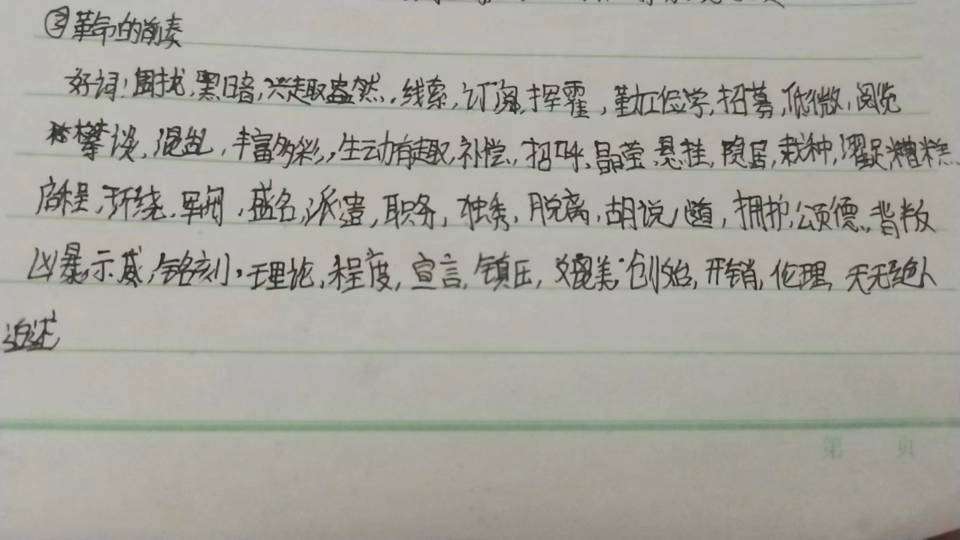 ③革命的前奏
好词：困扰，黑暗，兴趣盎然，线索，订阅，挥霍，勤工俭学，招募，低微，阅览
攀谈，混乱，丰富多彩，生动有趣，补偿，招呼，晶莹，悬挂，隐居，栽种，糟糕
启程，环绕，军阀，盛名，派遣，职务，独秀，脱离，胡说，随，拥护，颂德，背叛
凶暴，示威，铭刻，理论，程度，宣言，镇压，媲美，创始，开销，伦理，天无绝人
追述
第 页